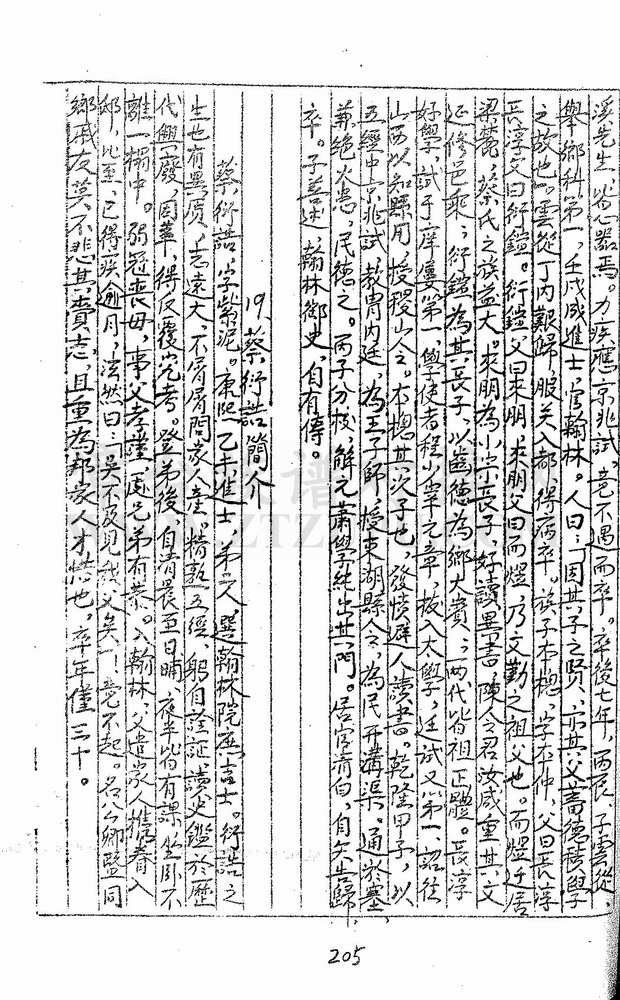 溪先生、省心器焉。力疾應京兆試，竟不遇而卒。卒後七年，丙辰，子雲從，
舉鄉科第一，壬戌成進士，官翰林。人曰：“因其子之賢，亦其父蓄德積學
之故也。”雲從丁內艱歸，服关入都，得病卒。族子本樬，字本仲，父曰長淳
長淳父曰衍鎧。衍鎧父曰來朋，來朋父曰而熤，乃文勤之祖父也。而熤迁居
梁麓，蔡氏之族益大。來朋為小宗長子，好讀異書，陳令君汝咸重其文
延修邑乘；衍鎧為其長子，以齒德為鄉大賓；兩代皆祖正體。長淳
好學，試于庠屢第一，學使者程小宰之章，拔入太學，廷試又第一，詔往
山西以知縣用，授稷山令。本樬其次子也，發憤避人讀書。乾隆甲子，以
五經中京兆試，教胄內廷，為王子師，授東湖縣令，為民开溝渠。通淤塞，
兼绝火患，民德之。丙子分校，解元蕭學純出其門。居官清白，自矢告歸，
卒。子善述，翰林御史，自有傳。
19、蔡衍誥簡介
蔡衍誥，字紫泥。康熙乙未進士，第二人，選翰林院庶吉士。衍誥之
生也有異质，志遠大，不屑屑問家人產。精熟五經，躬自詮証，讀史鑑於歷
代興廢，因革，得反覆究考。登第後，自清晨至日晡，夜半皆有課，坐卧不
離一榻中。弱冠喪母，事父孝謹，處兄弟有恭。入翰林，父遣家人携眷入
邸，比至，已得疾逾月，泫然曰：“吳不及見我父矣！”竟不起。名公卿暨同
鄉戚友莫不悲其賚志，且重為邦家人才惜也，卒年僅三十。
205